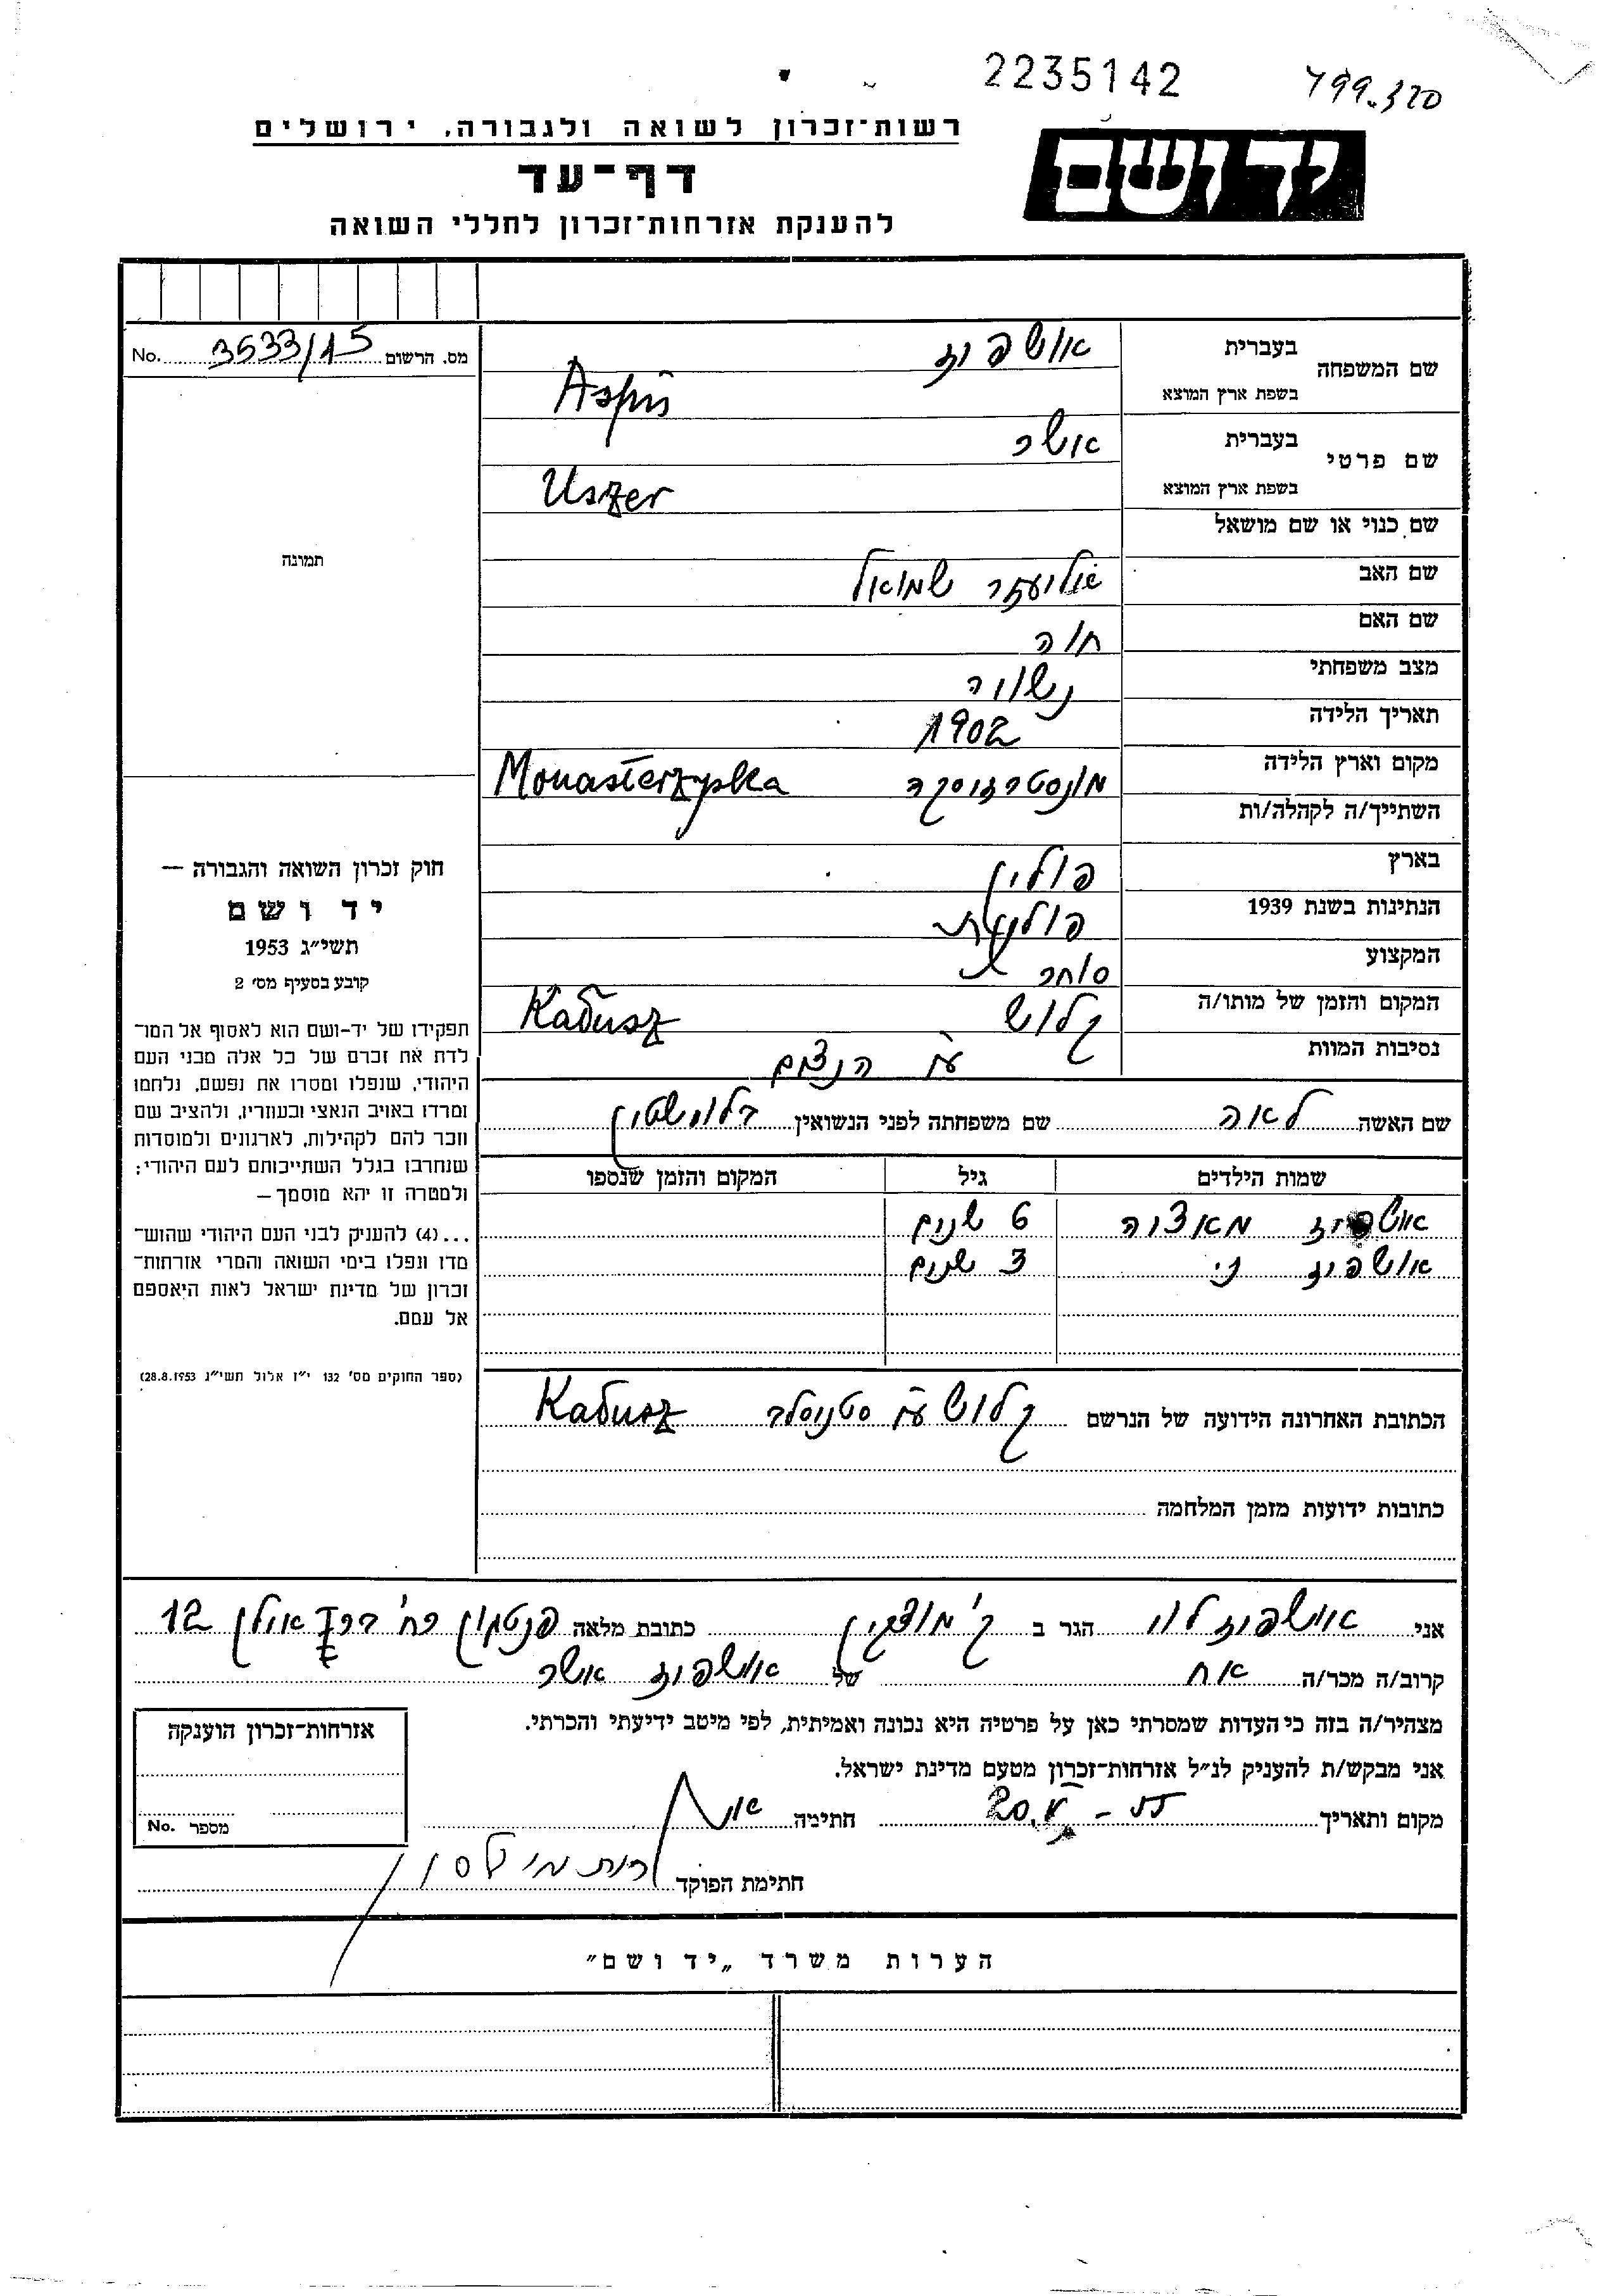 2235142
799.320
רשות־זכרון לשואה ולגבורה, ירושלים
יד ושם
דף־עד
להענקת אזרחות־זכרון לחללי השואה
מס. הרשום 3533/15 No.
תמונה
שם המשפחה בעברית אושפיז
בשפת ארץ המוצא
שם פרטי בעברית אושר
בשפת ארץ המוצא Uszer
שם כנוי או שם מושאל
שם האב אליעזר שמואל
שם האם חוה
מצב משפחתי נשוי
תאריך הלידה 1902
מקום וארץ הלידה מונסטרז'יסקה Monasterzyska
השתייך/ה לקהלה/ות
בארץ פולין
הנתינות בשנת 1939 פולנית
המקצוע סוחר
המקום והזמן של מותו/ה קלוש Kałusz
נסיבות המוות ע"י הנצים
שם האשה לאה שם משפחתה לפני הנשואין
שמות הילדים גיל המקום והזמן שנספו
אושפיז 6 שנים
אושפיז 3 שנים
הכתובת האחרונה הידועה של הנרשם קלוש ע"י סטניסלב Kałusz
כתובות ידועות מזמן המלחמה
חוק זכרון השואה והגבורה —
יד ושם
תשי״ג 1953
קובע בסעיף מס׳ 2
תפקידו של יד-ושם הוא לאסוף אל המו־
לדת את זכרם של כל אלה מבני העם
היהודי, שנפלו ומסרו את נפשם, נלחמו
ומרדו באויב הנאצי ובעוזריו, ולהציב שם
וזכר להם לקהילות, לארגונים ולמוסדות
שנחרבו בגלל השתייכותם לעם היהודי;
ולמטרה זו יהא מוסמך —
...(4) להעניק לבני העם היהודי שהוש־
מדו ונפלו בימי השואה והמרי אזרחות־
זכרון של מדינת ישראל לאות היאספם
אל עמם.
(ספר החוקים מס׳ 132 י״ז אלול תשי״ג 28.8.1953)
אני אושפיז לוי הגר ב ק' מוצקין כתובת מלאה רח' 12
קרוב/ה מכר/ה אח של אושפיז אושר
מצהיר/ה בזה כי העדות שמסרתי כאן על פרטיה היא נכונה ואמיתית, לפי מיטב ידיעתי והכרתי.
אני מבקש/ת להעניק לנ״ל אזרחות־זכרון מטעם מדינת ישראל.
מקום ותאריך 20.V - 55 חתימה
חתימת הפוקד
אזרחות־זכרון הוענקה
מספר No.
הערות משרד „יד ושם״